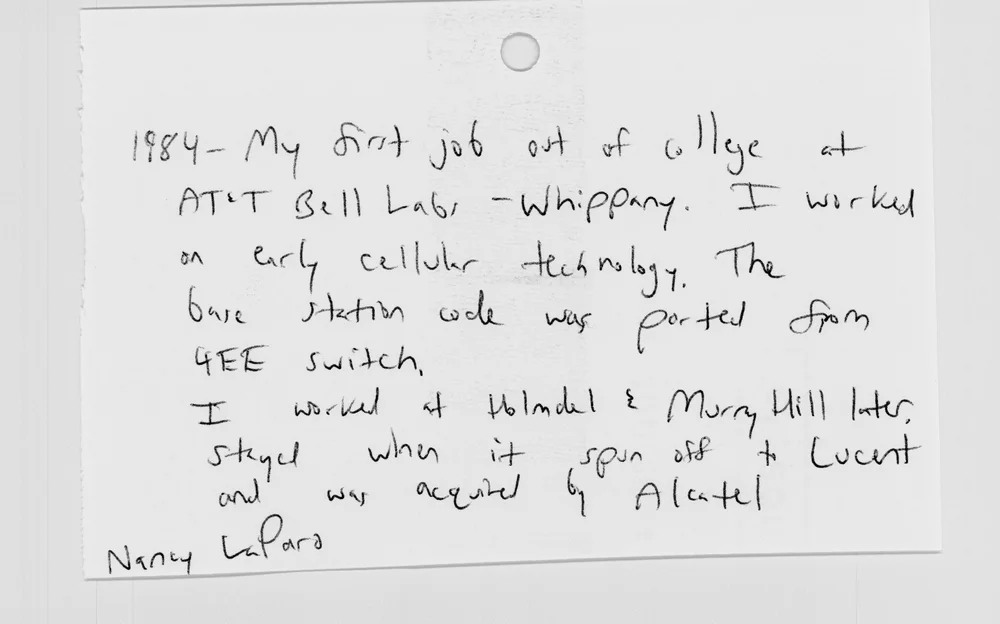 1984 - My first job out of college at
AT&T Bell Labs - Whippany. I worked
on early cellular technology. The
base station code was ported from
4EE switch.
I worked at Holmdel & Murry Hill later,
stayed when it spun off to Lucent
and was acquired by Alcatel
Nancy LaParo